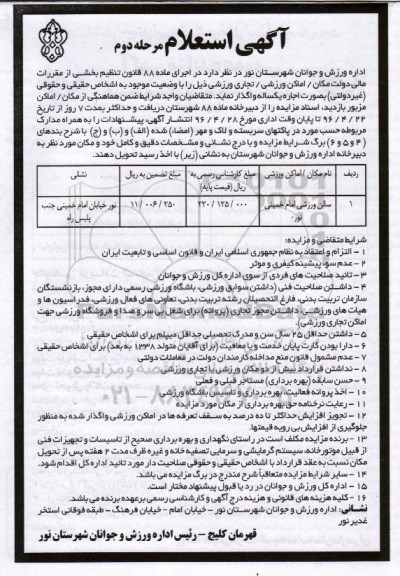 آگهی استعلام مرحله دوم
اداره ورزش و جوانان شهرستان نور در نظر دارد در اجرای ماده ۸۸ قانون تنظیم بخشی از مقررات
مالی دولت مکان / اماکن ورزشی / تجاری ورزشی ذیل را با وضعیت موجود به اشخاص حقیقی و حقوقی
(غیردولتی) بصورت اجاره یکساله واگذار نماید. متقاضیان واجد شرایط ضمن هماهنگی از مکان / اماکن
مزبور بازدید، اسناد مزایده را از دبیرخانه ماده ۸۸ شهرستان دریافت و حداکثر بمدت ۷ روز از تاریخ
۹۶ / ۴ / ۲۲ تا پایان وقت اداری مورخ ۲۸ / ۴ / ۹۶ انتشار آگهی، پیشنهادات را به همراه مدارک
مربوطه حسب مورد در پاکتهای سربسته و لاک و مهر (امضاء) شده (الف) و (ب) و (ج) با شرح بندهای
(۴ و ۵ و ۶) برگ شرایط مزایده و با درج نشانی و مشخصات دقیق و کامل خود و مکان مورد نظر به
دبیرخانه اداره ورزش و جوانان شهرستان به نشانی (زیر) با اخذ رسید تحویل دهند.
ردیف نام مکان / اماکن ورزشی مبلغ کارشناسی رسمی به ریال (قیمت پایه) مبلغ تضمین به ریال نشانی
۱ سالن ورزشی امام خمینی نور ۲۲۰ / ۱۲۵ / ۰۰۰ ۱۱ / ۰۰۶ / ۲۵۰ نور خیابان امام خمینی جنب پلیس راه
شرایط متقاضی و مزایده:
۱ - التزام و اعتقاد به نظام جمهوری اسلامی ایران و قانون اساسی و تابعیت ایران
۲ - عدم سوء پیشینه کیفری و موثر
۳ - تائید صلاحیت های فردی از سوی اداره کل ورزش و جوانان
۴ - داشتن صلاحیت فنی (داشتن سوابق ورزشی، باشگاه ورزشی رسمی دارای مجوز، بازنشستگان
سازمان تربیت بدنی، فارغ التحصیلان رشته تربیت بدنی، تعاونی های فعال ورزشی، فدراسیون ها و
هیات های ورزشی... داشتن مجوز تجاری (پروانه) برای شغل بی سر و صدا و فروشگاه ورزشی جهت
اماکن تجاری ورزشی).
۵ - داشتن حداقل ۲۵ سال سن و مدرک تحصیلی حداقل دیپلم برای اشخاص حقیقی
۶ - دارا بودن کارت پایان خدمت و یا معافیت (برای آقایان متولد ۱۳۳۸ به بعد) برای اشخاص حقیقی
۷ - عدم مشمول قانون منع مداخله کارمندان دولت در معاملات دولتی
۸ - نداشتن قرارداد بیش از دو مکان ورزشی یا تجاری ورزشی
۹ - حسن سابقه (بهره برداری) مستاجر قبلی و فعلی
۱۰ - اخذ پروانه فعالیت بهره برداری و تاسیس باشگاه ورزشی
۱۱ - رعایت نرخنامه حق بهره برداری از مکان مورد مزایده
۱۲ - تجویز افزایش حداکثر تا ده درصد به سقف تعرفه ها در اماکن ورزشی واگذار شده به منظور
جلوگیری از افزایش بی رویه قیمتها.
۱۳ - برنده مزایده مکلف است در راستای نگهداری و بهره برداری صحیح از تاسیسات و تجهیزات فنی
از قبیل موتورخانه، سیستم گرمایشی و سرمایی تصفیه خانه و غیره ظرف مدت ۲ هفته پس از تحویل
مکان نسبت به عقد قرارداد با اشخاص حقیقی و حقوقی صلاحیت دار مورد تائید اداره کل اقدام شود.
۱۴ - سایر شرایط مزایده متعاقباً شرح مندرج در برگ مزایده می باشد.
۱۵ - اداره کل ورزش و جوانان در رد یا قبول پیشنهاد مختار است.
۱۶ - کلیه هزینه های قانونی و هزینه درج آگهی و کارشناسی رسمی برعهده برنده می باشد.
نشانی: اداره ورزش و جوانان شهرستان نور - خیابان امام - خیابان فرهنگ - طبقه فوقانی استخر
غدیر نور
قهرمان کلیج – رئیس اداره ورزش و جوانان شهرستان نور